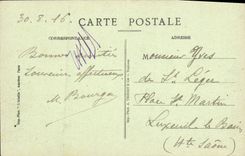 30.8.16
CARTE POSTALE
CORRESPONDANCE
ADRESSE
Bonne santé
Souvenir affectueux
M. Bourga
Monsieur Yves
de St Léger
Place St Martin
Luxeuil les Bains
(Hte Saône)